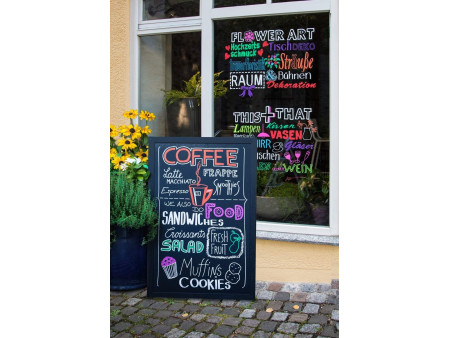 FLOWER ART
Hochzeits
schmuck
TischDEKO
Sträuße
RAUM & Bühnen
Dekoration
THIS + THAT
Lampen
Kissen
VASEN
Gläser
WEIN
COFFEE
Latte
MACCHIATO
FRAPPE
Espresso
Smoothies
WE ALSO DO FOOD
SANDWICHES
Croissants
SALAD
FRESH
FRUIT
Muffins
COOKIES